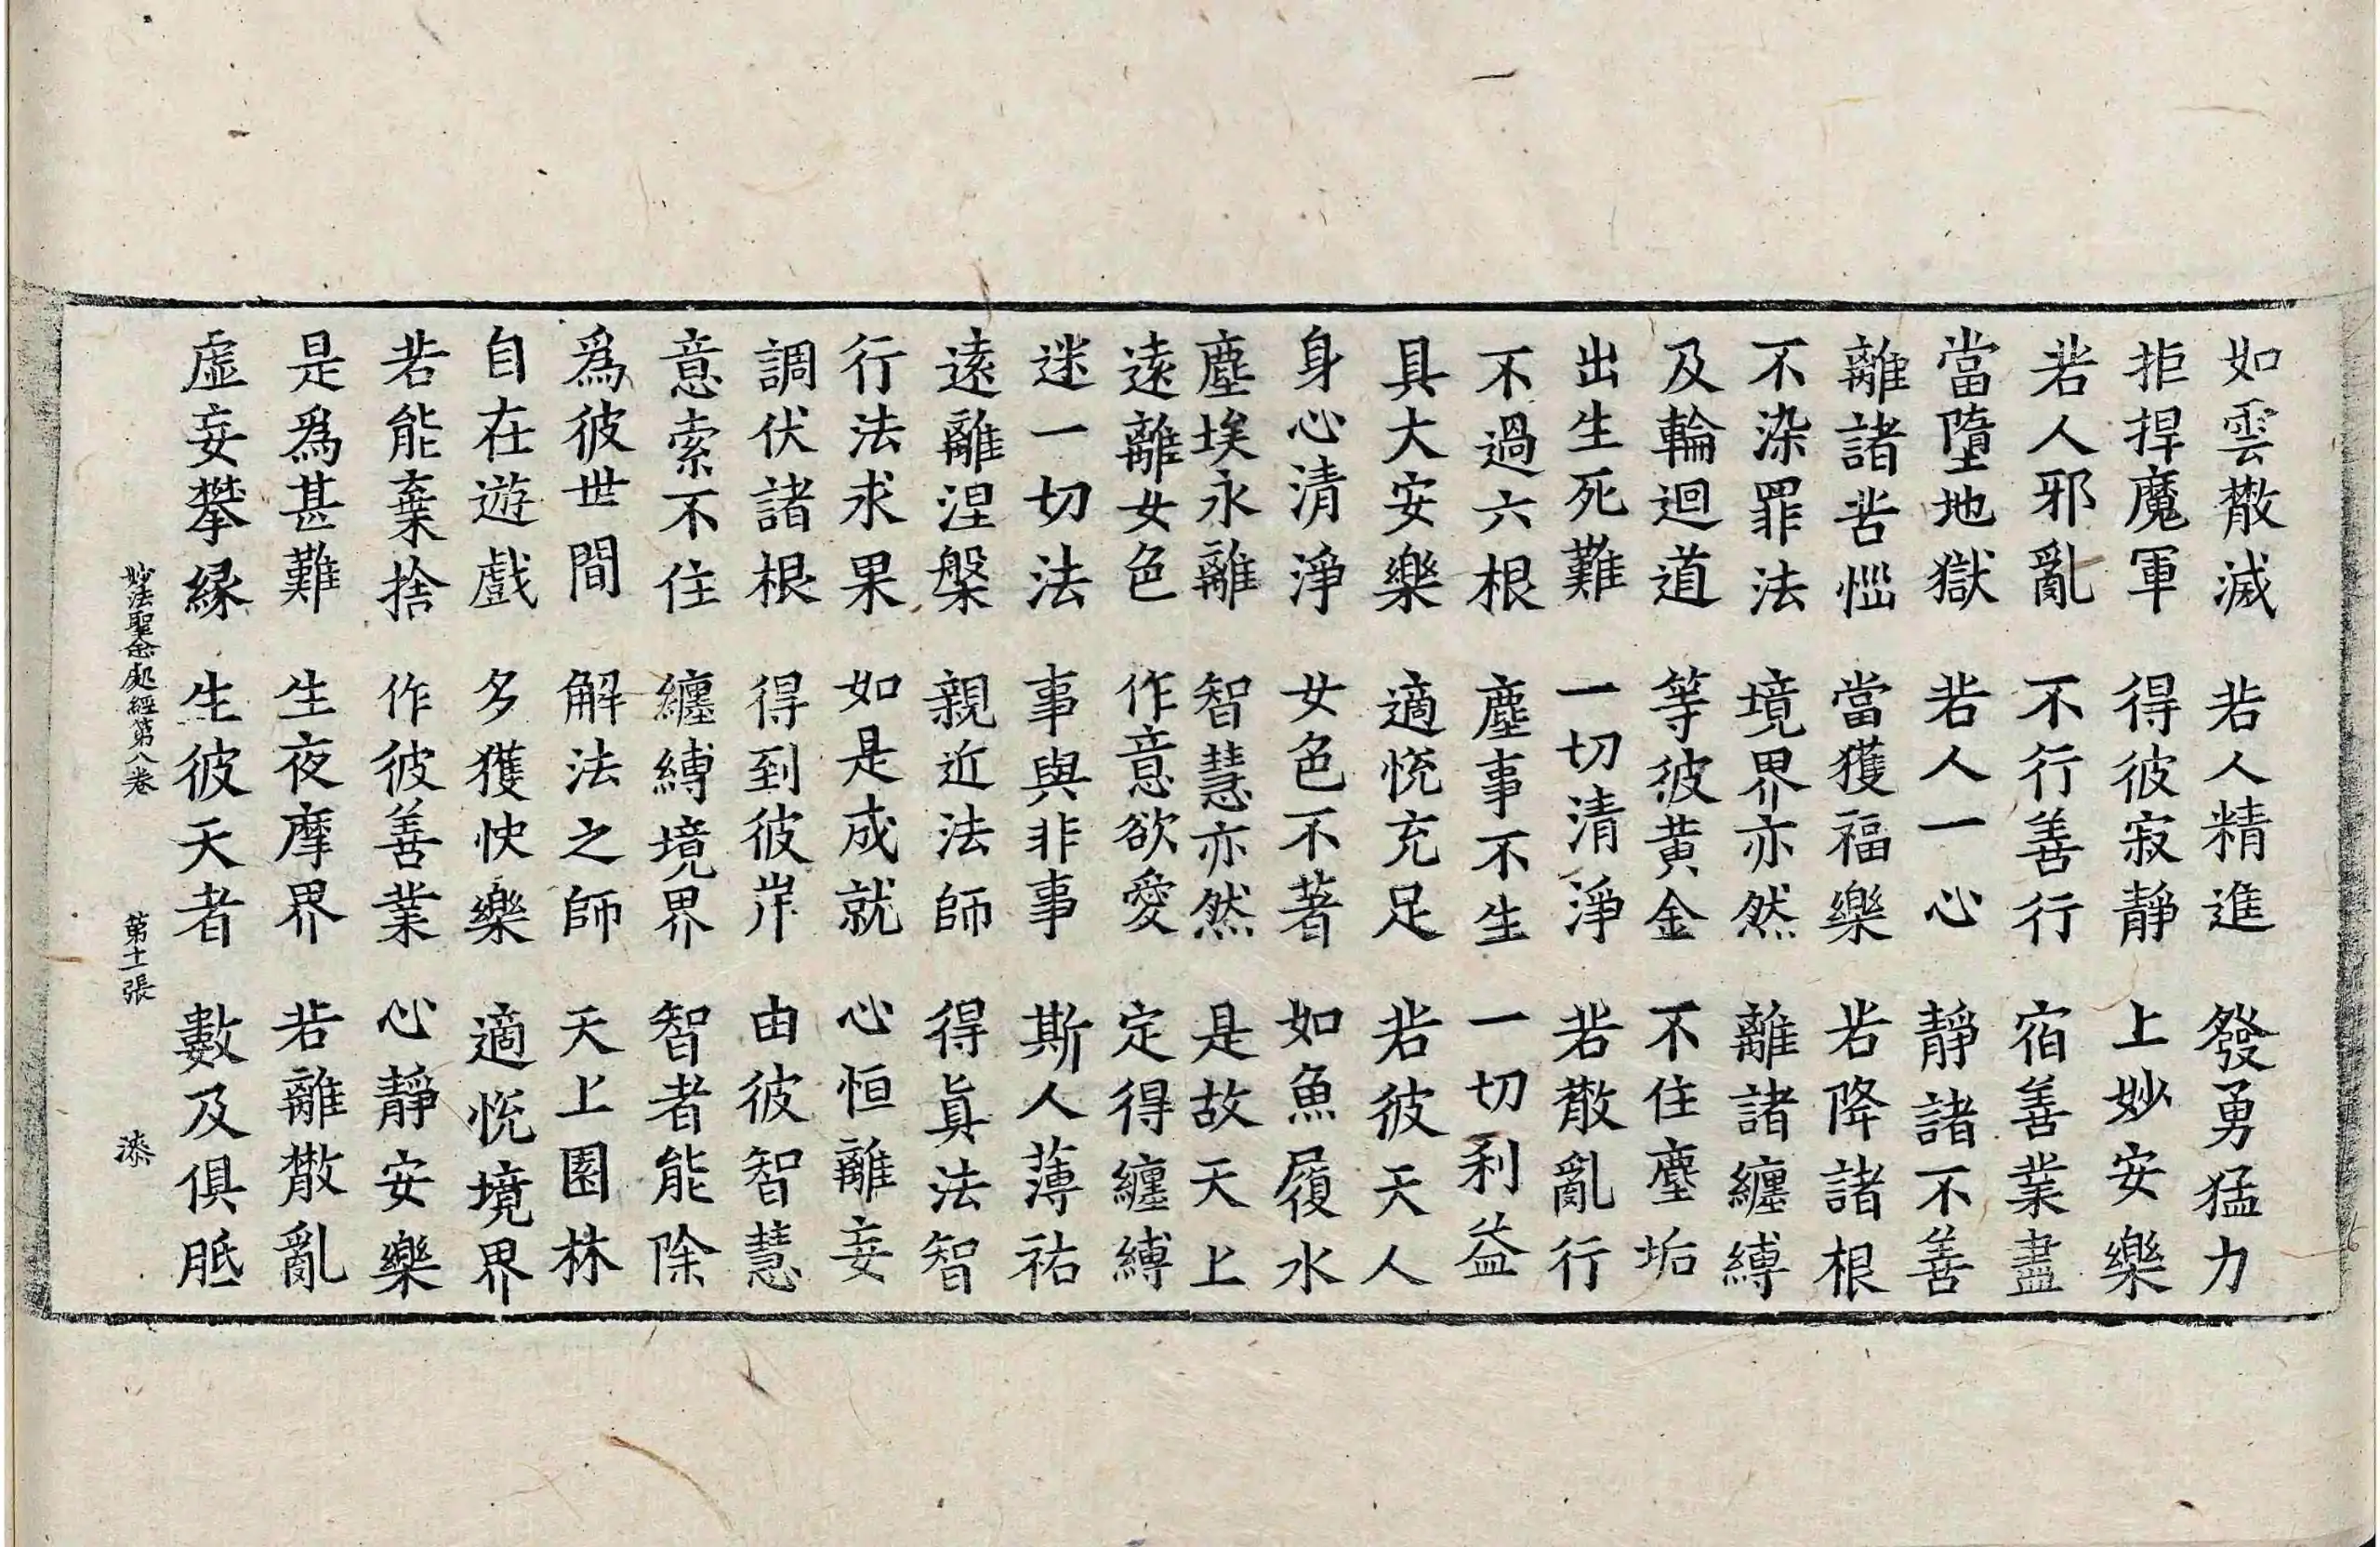 如雲散滅 若人精進 發勇猛力
拒捍魔軍 得彼寂靜 上妙安樂
若人邪亂 不行善行 宿善業盡
當墮地獄 若人一心 靜諸不善
離諸苦惱 當獲福樂 若降諸根
不染罪法 境界亦然 離諸纏縛
及輪迴道 等彼黃金 不住塵垢
出生死難 一切清淨 若散亂行
不過六根 塵事不生 一切利益
具大安樂 適悅充足 若彼天人
身心清淨 女色不著 如魚履水
塵埃永離 智慧亦然 是故天上
遠離女色 作意欲愛 定得纏縛
迷一切法 事與非事 斯人薄祐
遠離涅槃 親近法師 得眞法智
行法求果 如是成就 心恒離妄
調伏諸根 得到彼岸 由彼智慧
意索不住 纏縛境界 智者能除
爲彼世間 解法之師 天上園林
自在遊戲 多獲快樂 適悅境界
若能棄捨 作彼善業 心靜安樂
是爲甚難 生夜摩界 若離散亂
虛妄攀緣 生彼天者 數及俱胝
妙法聖念處經第八卷 第十一張 漆